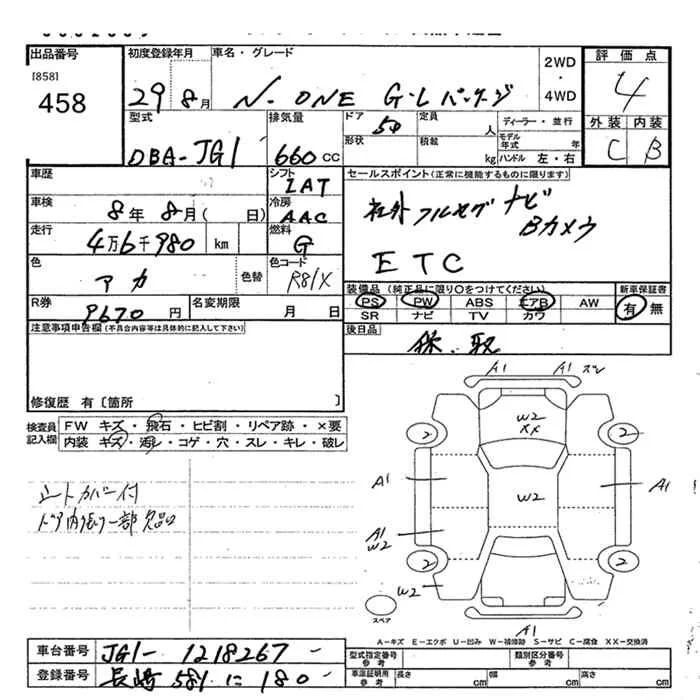 出品番号
[858]
458
初度登録年月
29 8月
車名・グレード
N-ONE G・Lパッケージ
2WD
・
4WD
評価点
4
外装 内装
C B
型式
DBA-JG1
排気量
660 cc
ドア
5D
形状
定員
人
積載
kg
ディーラー・並行
モデル年式 年
ハンドル 左・右
車歴
シフト
IAT
セールスポイント(正常に機能するものに限ります)
社外フルセグナビ
Bカメラ
ETC
車検
8年 8月( 日)
冷房
AAC
走行
4万6千980 km
燃料
G
色
アカ
色替
色コード
R81X
装備品(純正品に限り○をつけてください)
PS PW ABS エアB AW
SR ナビ TV カワ
新車保証書
有 無
R券
9670 円
名変期限
月 日
後日品
保、取
注意事項申告欄(不具合内容等は具体的に記入して下さい)
修復歴 有〔箇所 〕
検査員記入欄
FW キズ・飛石・ヒビ割・リペア跡・×要
内装 キズ・汚レ・コゲ・穴・スレ・キレ・破レ
シートカバー付
ドア内張り一部欠品
A1 A1 ズレ
W2
XX
2 2
A1 W2 A1
A1
W2
2 2
W2
スペア
A1
A-キズ E-エクボ U-凹み W-補修跡 S-サビ C-腐食 XX-交換済
車台番号
JG1-1218267
登録番号
長崎 581 に 180
型式指定番号
参考
類別区分番号
参考
車庫証明用
参考
長さ cm
幅 cm
高さ cm